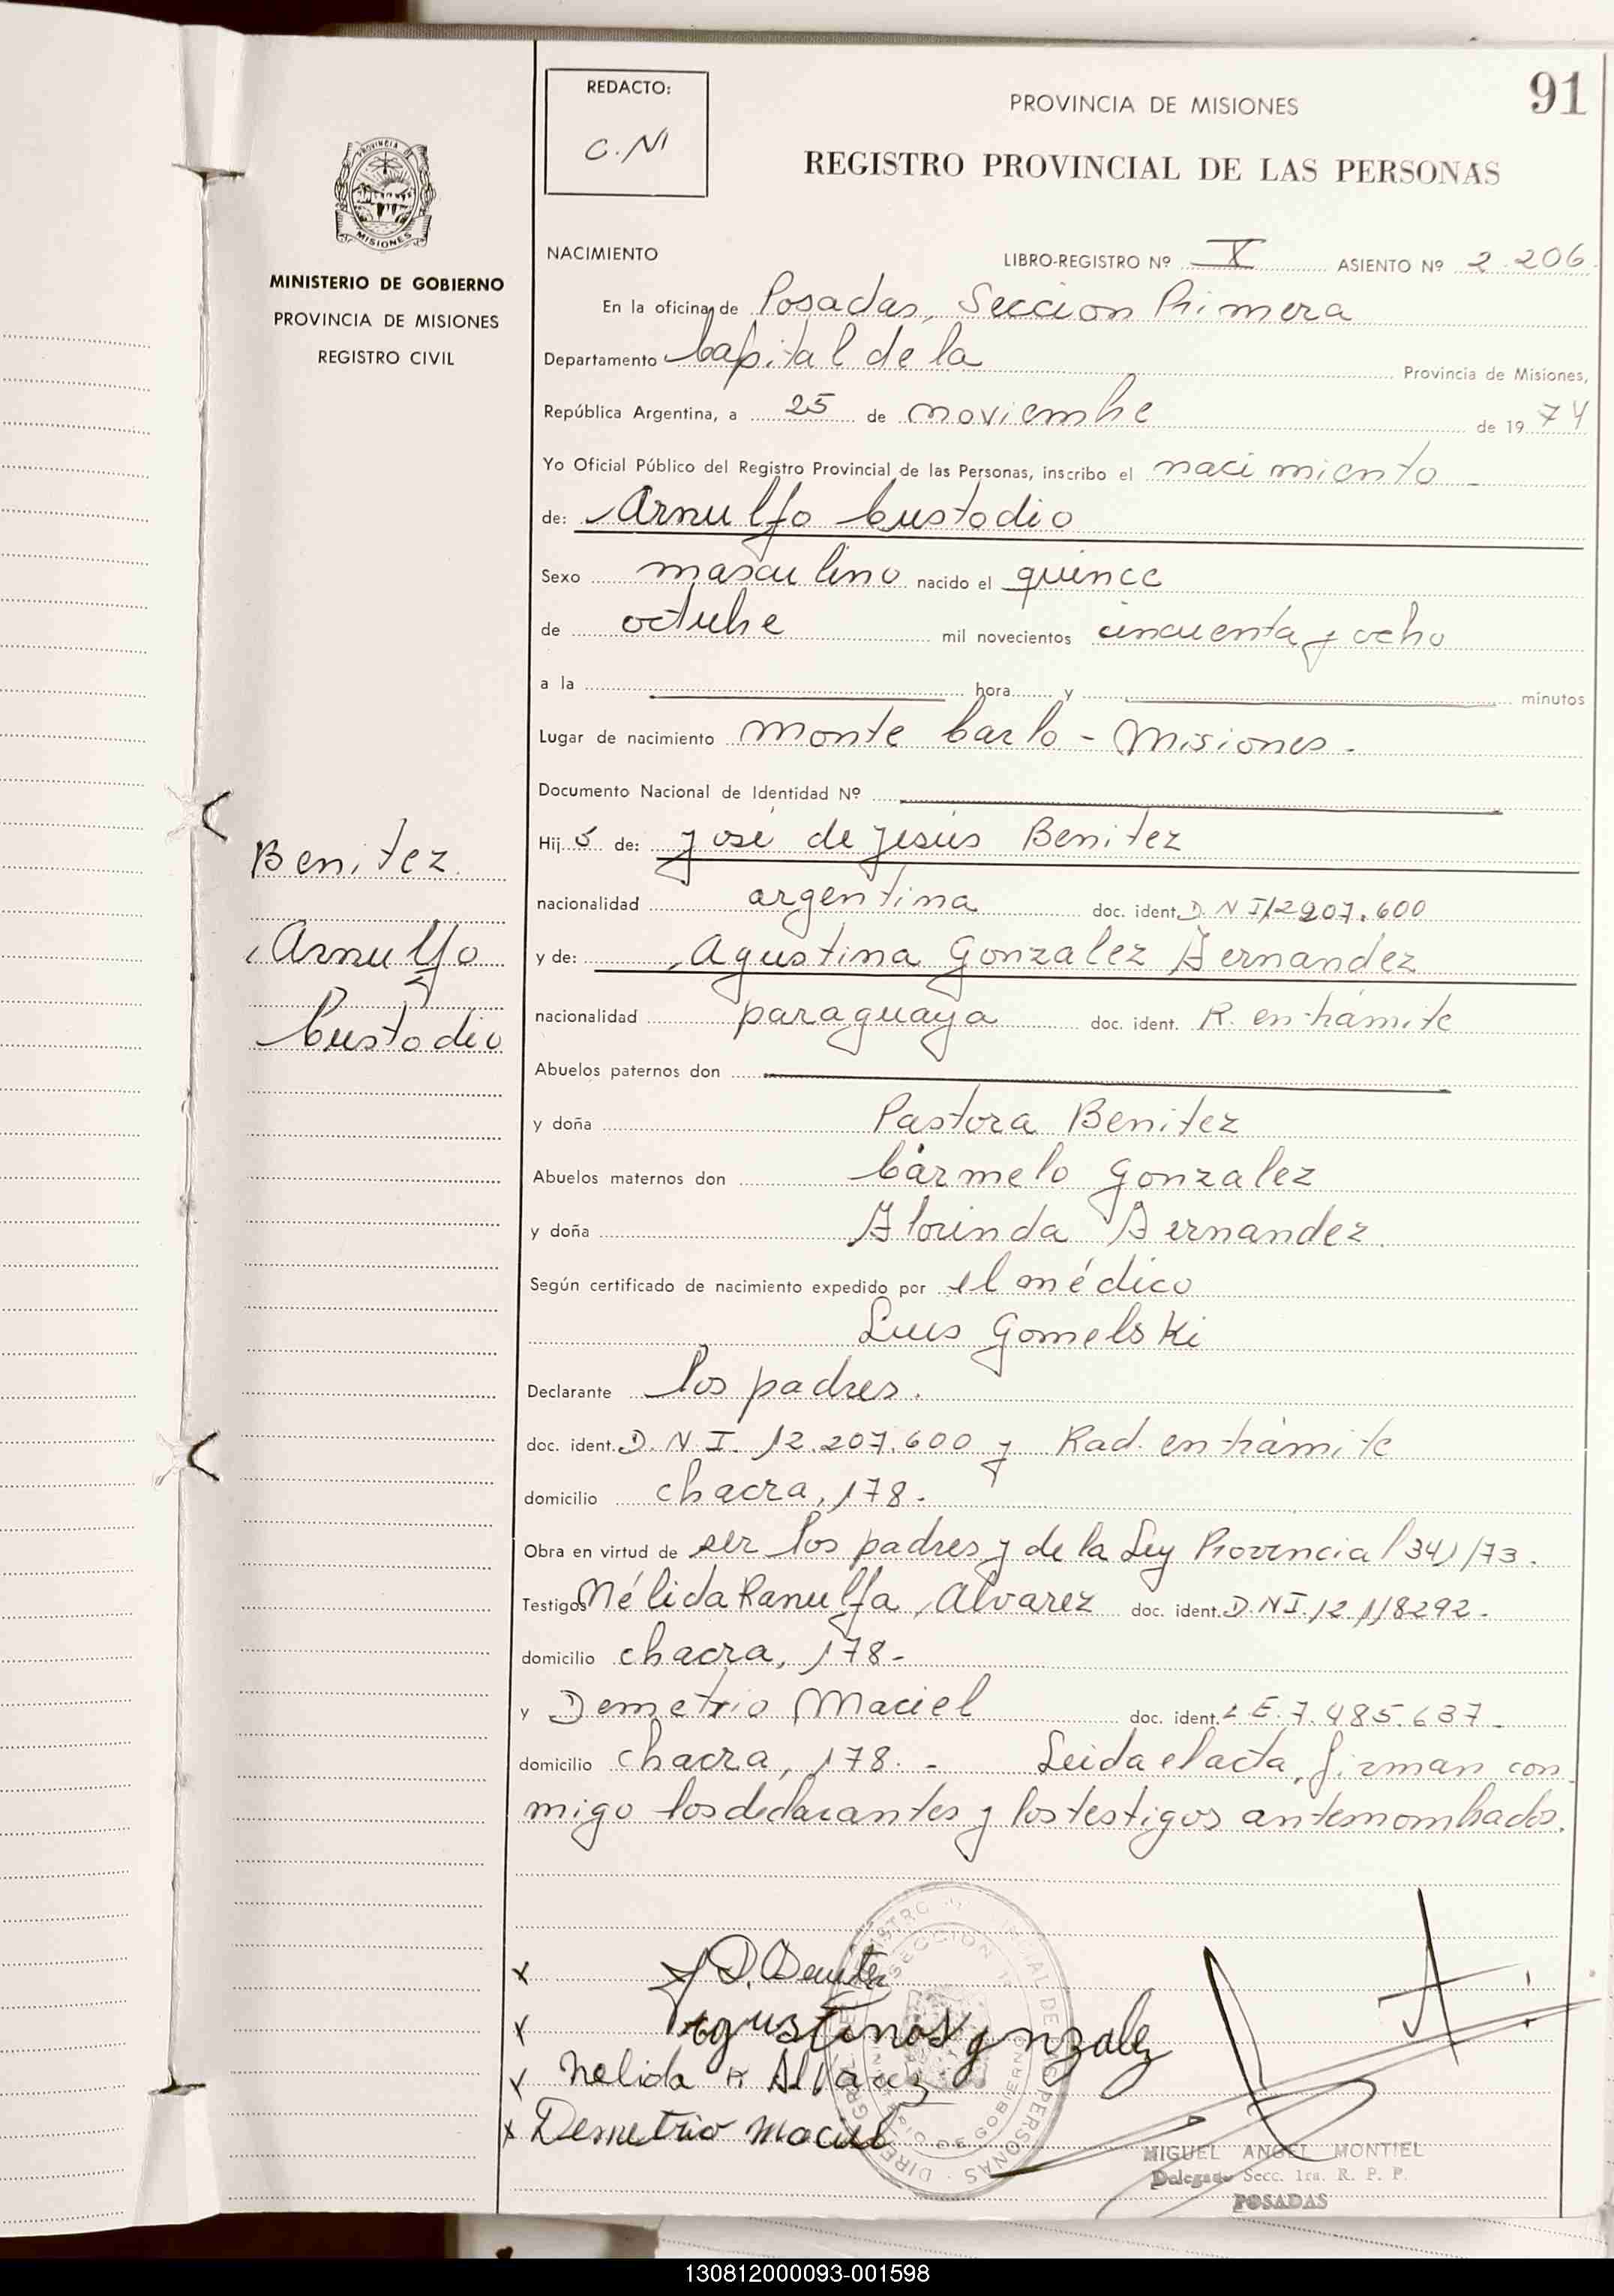 91
REDACTO:
C. N
PROVINCIA DE MISIONES
REGISTRO PROVINCIAL DE LAS PERSONAS
PROVINCIA DE
MISIONES
MINISTERIO DE GOBIERNO
PROVINCIA DE MISIONES
REGISTRO CIVIL
NACIMIENTO LIBRO-REGISTRO Nº X ASIENTO Nº 2 206
En la oficina de Posadas, Seccion Primera
Departamento Capital de la Provincia de Misiones,
República Argentina, a 25 de noviembre de 1974
Yo Oficial Público del Registro Provincial de las Personas, inscribo el nacimiento
de: Arnulfo Custodio
Sexo masculino nacido el quince
de octubre mil novecientos cincuenta y ocho
a la hora y minutos
Lugar de nacimiento Monte Carlo - Misiones.
Documento Nacional de Identidad Nº
Hijo de: José de Jesús Benitez
nacionalidad argentina doc. ident. D. N I 12207.600
y de: Agustina Gonzalez Fernandez
nacionalidad paraguaya doc. ident. R. en trámite
Abuelos paternos don
y doña Pastora Benitez
Abuelos maternos don Cármelo Gonzalez
y doña Florinda Fernandez
Según certificado de nacimiento expedido por el médico
Luis Gomelski
Declarante los padres.
doc. ident. D. N I. 12.207.600 y Rad. en trámite
domicilio chacra, 178.
Obra en virtud de ser los padres y de la Ley Provincial 341/73.
Testigos Nélida Ranulfa Alvarez doc. ident. D.N I. 12.118292.
domicilio chacra, 178-
y Demetrio Maciel doc. ident. L E. 7.485.637
domicilio chacra, 178. - Leida el acta, firman con
migo los declarantes y los testigos antenombrados.
Benitez
Arnulfo
Custodio
x J D. Benitez
x Agustina gonzalez
x Nelida R Alvarez
x Demetrio Maciel
SECCION
MINISTERIO DE GOBIERNO
MIGUEL ANGEL MONTIEL
Delegado Secc. 1ra. R. P. P.
POSADAS
130812000093-001598